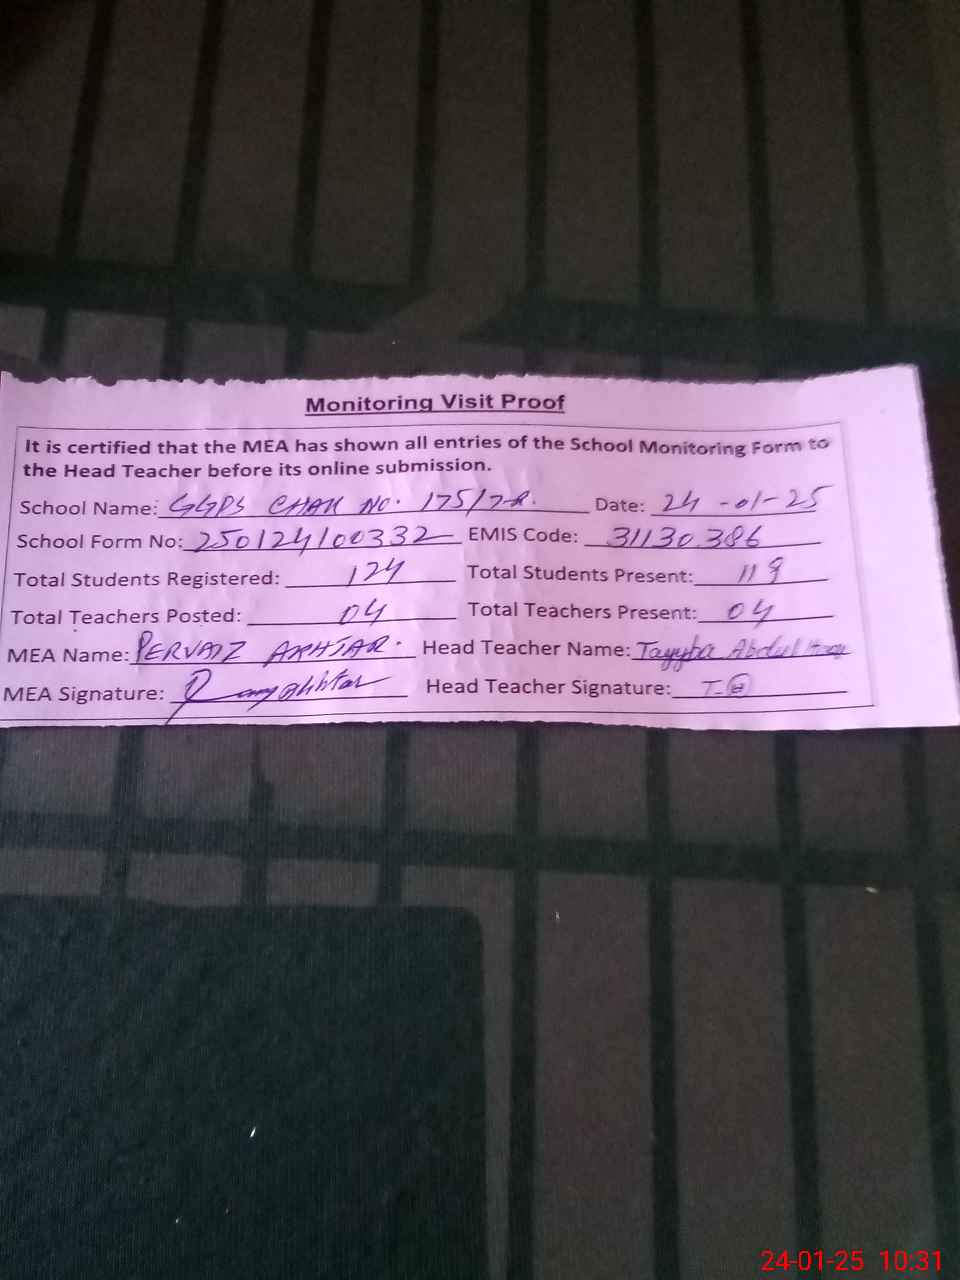 Monitoring Visit Proof
It is certified that the MEA has shown all entries of the School Monitoring Form to
the Head Teacher before its online submission.
School Name: GGPS CHAK NO. 175/7-R. Date: 24-01-25
School Form No: 250124100332 EMIS Code: 31130386
Total Students Registered: 124 Total Students Present: 119
Total Teachers Posted: 04 Total Teachers Present: 04
MEA Name: PERVAIZ AKHTAR. Head Teacher Name: Tayyba Abdul
MEA Signature: Head Teacher Signature:
24-01-25 10:31